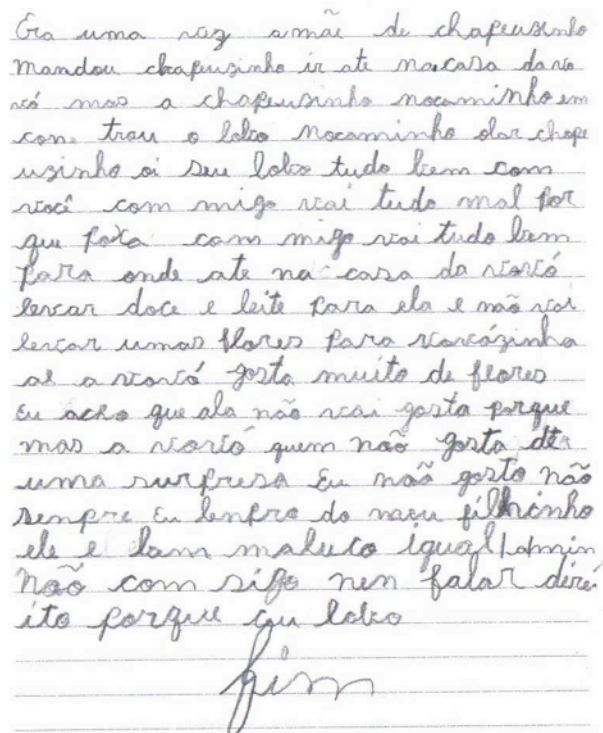 Era uma vez a mãe de chapeusinho
mandou chapeuzinho ir ate na casa da vo
vó mas a chapeusinho nocaminho em
con trou o lobo nocaminho olar chape
uzinho oi seu lobo tudo bem com
você com migo vai tudo mal por
que para com migo vai tudo bem
para onde ate na casa da vovó
levar doce e leite para ela e não vai
levar umas flores para vovózinha
a vovó gosta muito de flores
Eu acho que ala não vai gosta porque
mas a vovó quem não gosta de
uma surpresa Eu não gosto não
sempre Eu lenpro do meu filhinho
ele e bam maluco igual
não com sigo nen falar dire
ito porque lobo
fim